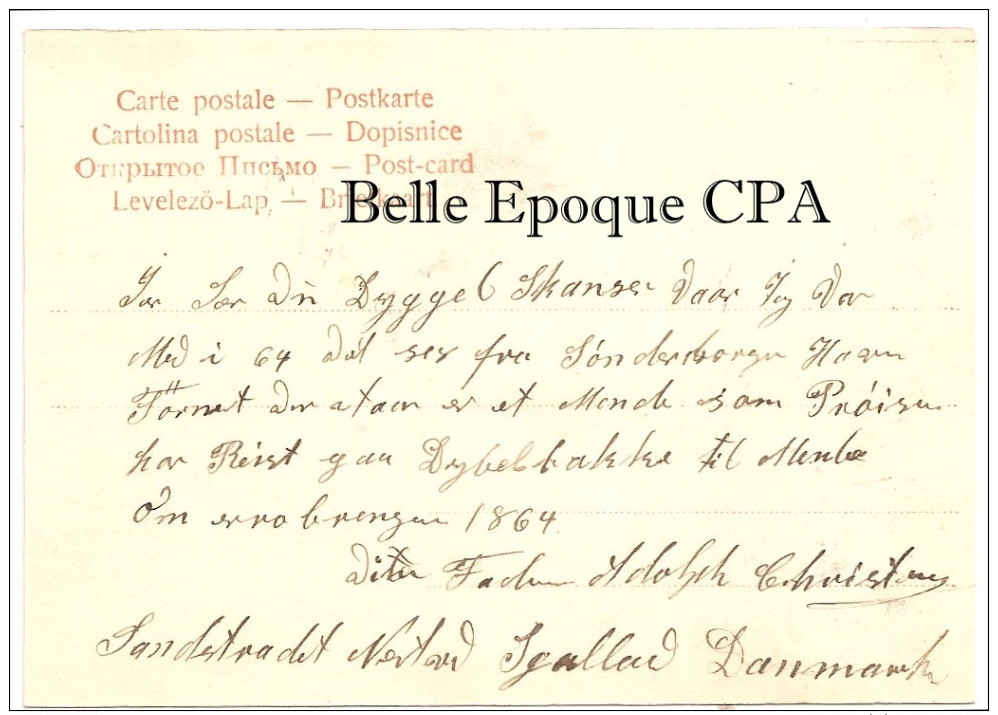 Carte postale — Postkarte
Cartolina postale — Dopisnice
Открытое Письмо — Post-card
Levelezö-Lap, — Briefkaart
Belle Epoque CPA
Her Ser Du Dyggel Skanser Vaar Jeg Var
Med i 64 det ses fra Sönderborgn Havn
Törnet der staar er et Monde som Pröisn
har Reist paa Dybelbakke til Menbe
Om erobrengen 1864
Din Fader Adolph Christens
Sandstradet Nestved Sjallad Danmark